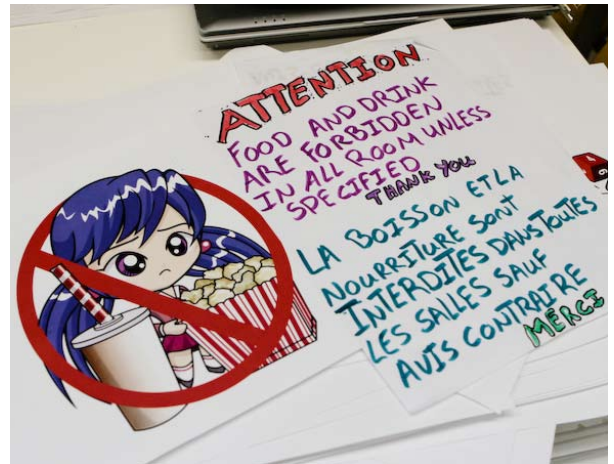 ATTENTION
FOOD AND DRINK
ARE FORBIDDEN
IN ALL ROOM UNLESS
SPECIFIED
THANK YOU
LA BOISSON ET LA
NOURRITURE SONT
INTERDITES DANS TOUTES
LES SALLES SAUF
AVIS CONTRAIRE
MERCI